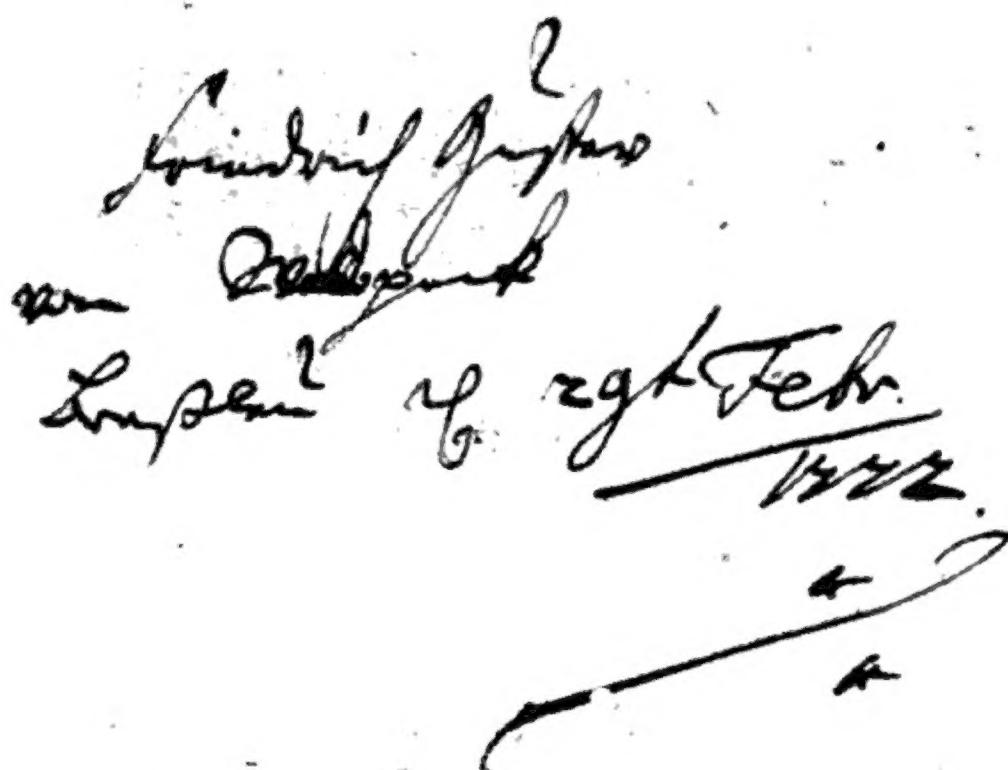 Friedrich Gustav
von
Breßlau d. 29t Febr.
1772.